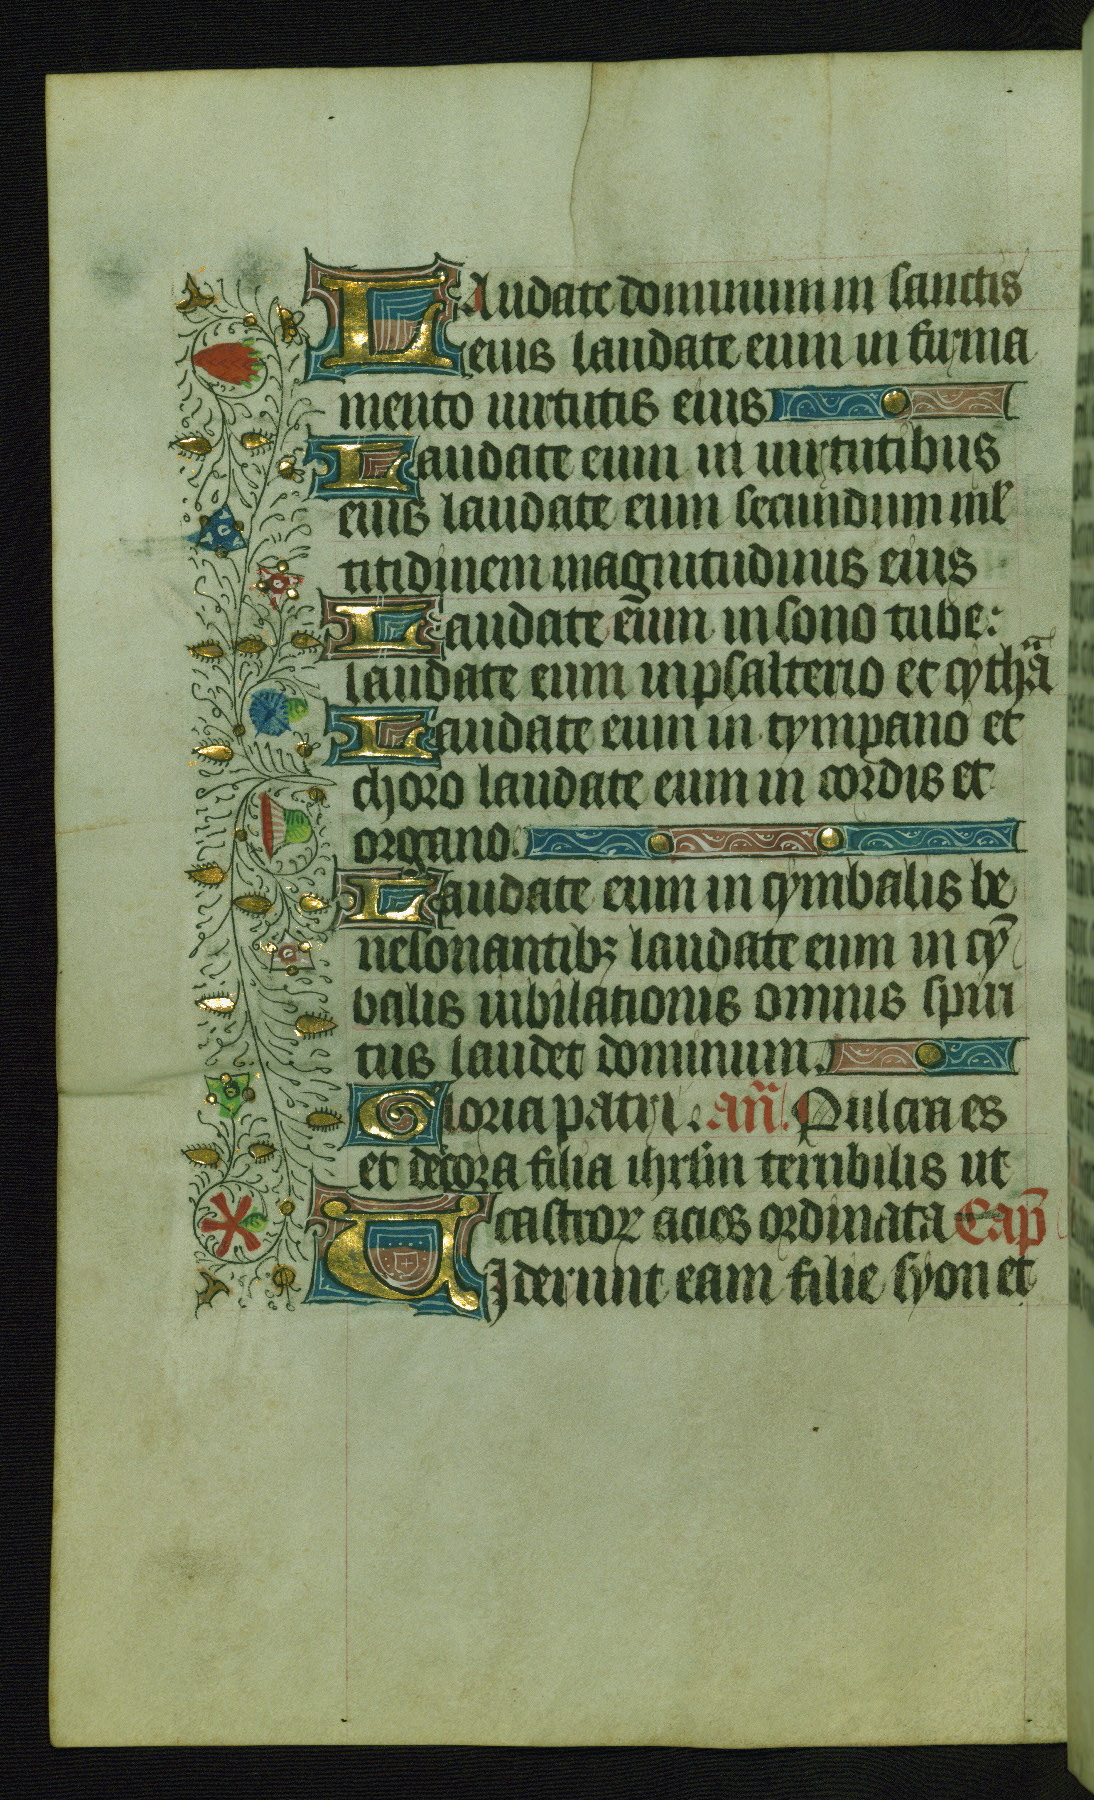 Laudate dominum in sanctis
eius laudate eum in firma
mento uirtutis eius
Laudate eum in uirtutibus
eius laudate eum secundum ml̄
titidinem magnitudinis eius
Laudate eū̄m in sono tube:
laudate eum in psalterio et cythā̄
Laudate eum in tympano et
choro laudate eum in cordis et
organo.
Laudate eum in cymbalis be
nesonantibꝫ laudate eum in cȳ
balis iubilationis omnis spiri
tus laudet dominum.
Gloria patri. añ. Pulcra es
et decora filia ihrl̄m terribilis ut
castroꝝ acies ordinata Cap̄
Uiderunt eam filie syon et